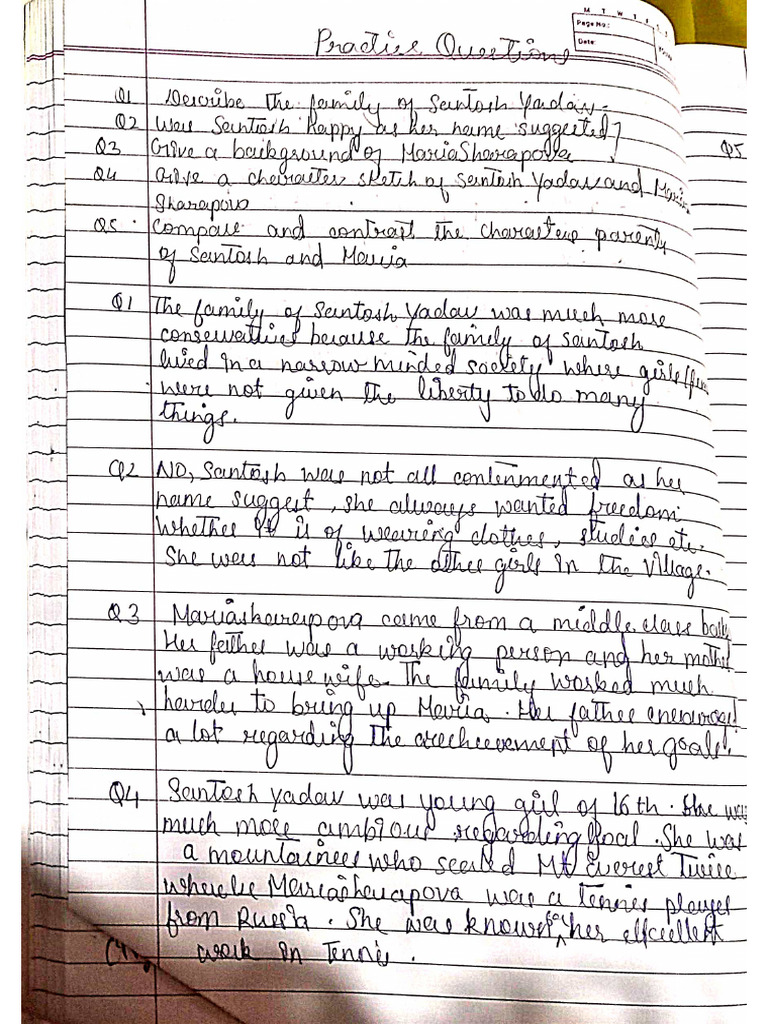 M T W T F S S
Page No.:
Date:
Practise Questions
Q1 Describe the family of Santosh Yadav.
Q2 Was Santosh happy as her name suggested?
Q3 Give a background of Maria Sharapova
Q5
Q4 Give a character sketch of Santosh Yadav and Maria
Sharapova
Q5. Compare and contrast the characters parents
of Santosh and Maria
Q1 The family of Santosh Yadav was much more
because the family of Santosh
lived in a narrow minded society where girls
were not given the liberty to do many
things.
Q2 NO, Santosh was not all contenmented as her
name suggest, she always wanted freedom
whether it is of wearing clothes, studies etc.
She was not like the other girls in the village.
Q3 Mariasharapova came from a middle class
Her father was a working person and her mother
was a house wife. The family worked much
harder to bring up Maria. Her father
a lot regarding the of her goals.
Q4 Santosh yadav was young girl of 16th. She was
much more ambious regarding goal. She was
a mountainees who scaled Mt Everest Twice
Mariasharapova was a tennis player
from Russia. She was known for her
work in Tennis.